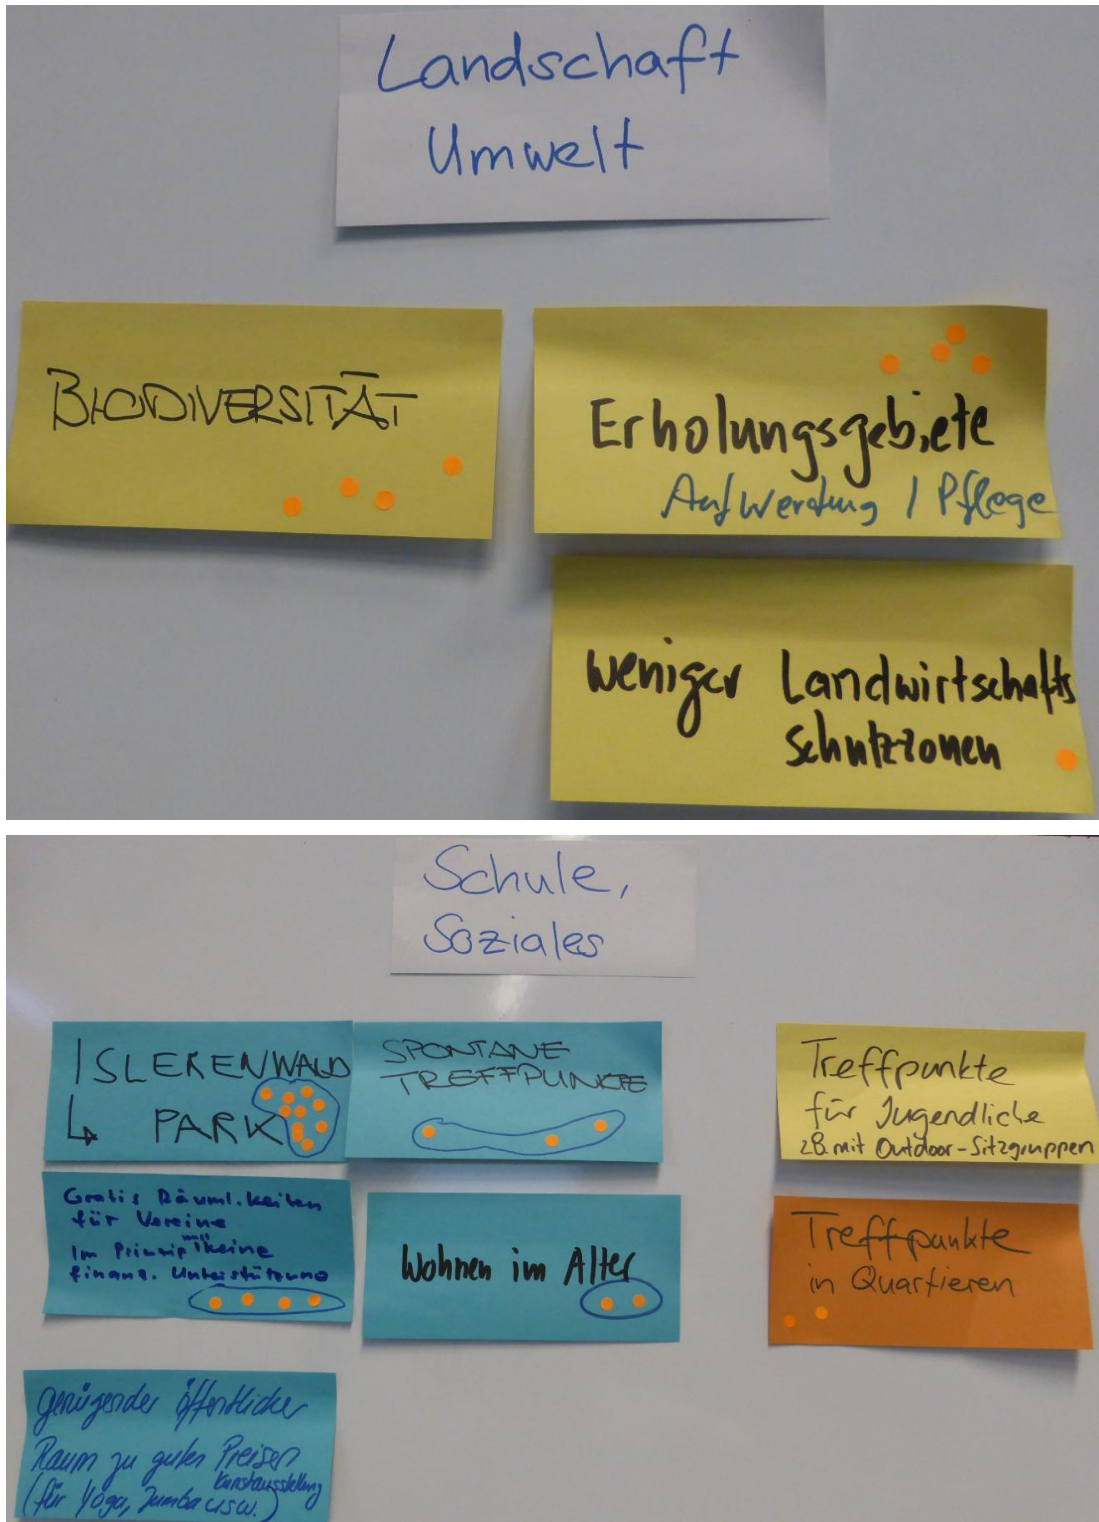 Landschaft
Umwelt
BIODIVERSITÄT
Erholungsgebiete
Aufwertung / Pflege
weniger Landwirtschafts
schutzzonen
Schule,
Soziales
ISLERENWALD
↳ PARK
SPONTANE
TREFFPUNKTE
Treffpunkte
für Jugendliche
zB. mit Outdoor-Sitzgruppen
Gratis Räumlikeiten
für Vereine
Im Prinzip keine
finanz. Unterstützung
Wohnen im Alter
Treffpunkte
in Quartieren
genügender öffentlicher
Raum zu guten Preisen
Kunstausstellung
(für Yoga, Zumba usw.)